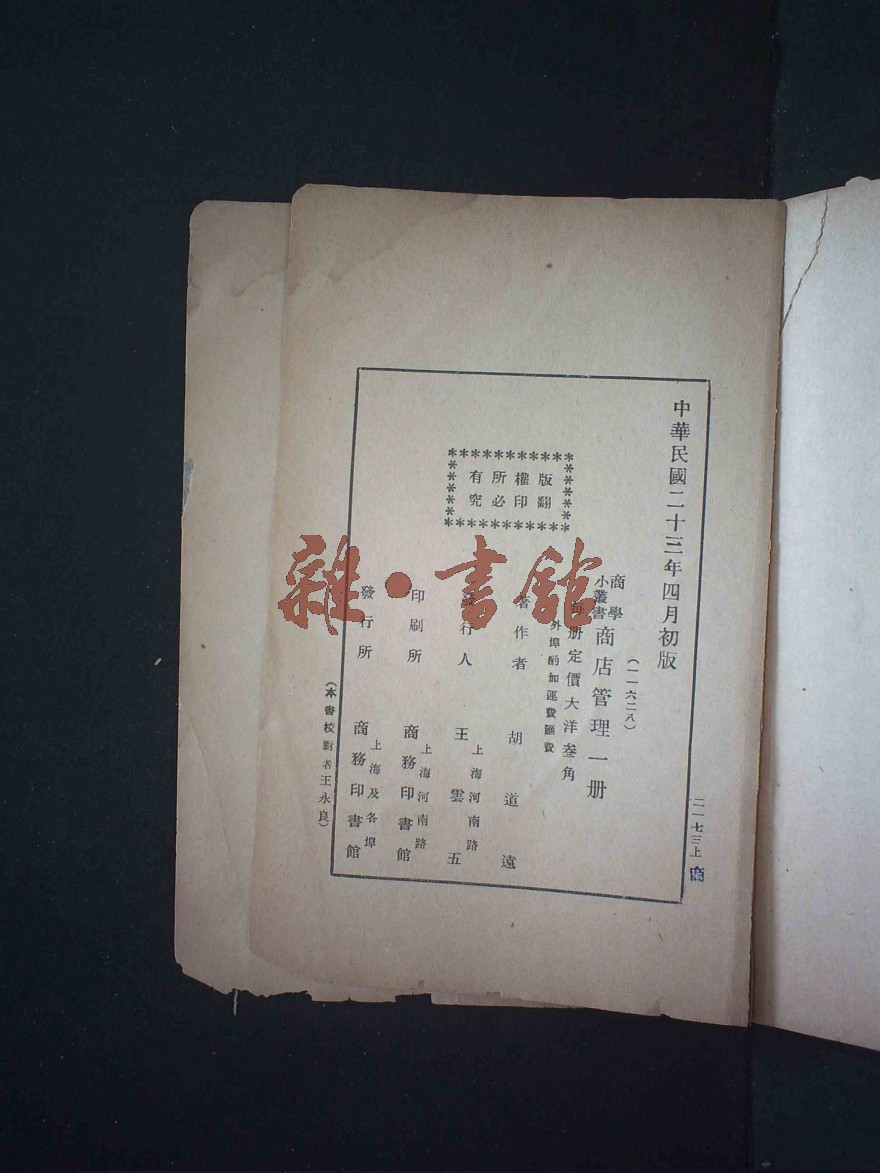 中華民國二十三年四月初版
(一一六二八)
商學
小叢書
商店管理一册
每册定價大洋叁角
外埠酌加運費匯費
版權所有
翻印必究
著作者 胡道遠
發行人 王雲五
上海河南路
印刷所 商務印書館
上海河南路
發行所 商務印書館
上海及各埠
(本書校對者王永良)
二一七三上
商
雜·書館